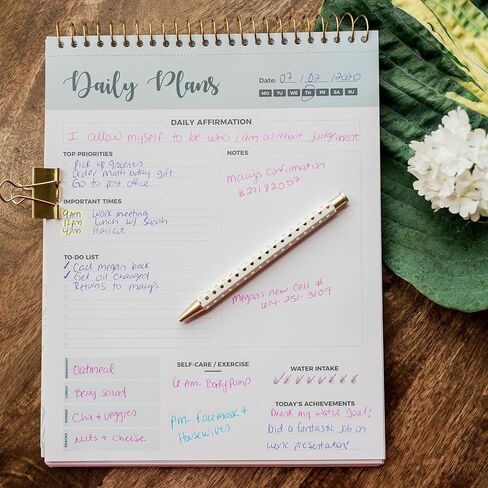 Daily Plans
Date: 07 / 02 / 2020
MO TU WE TH FR SA SU
DAILY AFFIRMATION
I allow myself to be who I am without judgement
TOP PRIORITIES
Pick up groceries
Order Matt bday gift
Go to post office
IMPORTANT TIMES
9am Work meeting
12pm Lunch w/ Sarah
4pm Haircut
TO-DO LIST
✓ Call Megan back
✓ Get oil changed
Returns to macy's
NOTES
Macy's Confirmation
#27182057
Megan's new Cell #
614-251-3109
BREAKFAST
Oatmeal
LUNCH
Berry Salad
DINNER
Chix + Veggies
SNACKS
Nuts + Cheese
SELF-CARE / EXERCISE
6 Am- Body Pump
Pm- facemask +
Housewives
WATER INTAKE
✓ ✓ ✓ ✓ ✓ ✓ ✓ ✓
TODAY'S ACHIEVEMENTS
Drank my water goal!
Did a fantastic job on
work presentation!